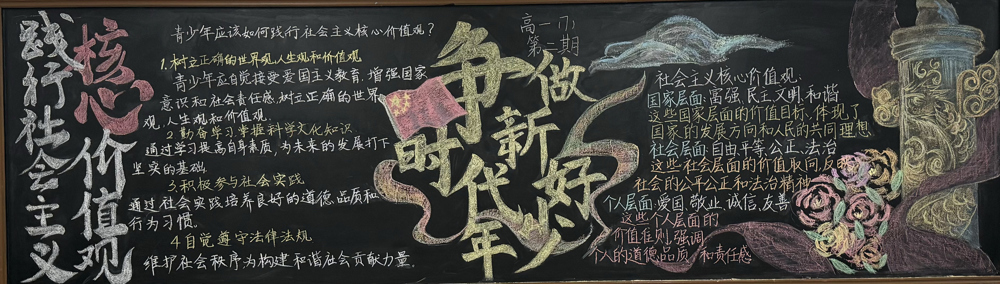 践行社会主义
核心价值观
青少年应该如何践行社会主义核心价值观?
1.树立正确的世界观、人生观和价值观
青少年应自觉接受爱国主义教育,增强国家
意识和社会责任感,树立正确的世界
观、人生观和价值观.
2.勤奋学习掌握科学文化知识
通过学习提高自身素质,为未来的发展打下
坚实的基础.
3.积极参与社会实践.
通过社会实践培养良好的道德品质和
行为习惯.
4自觉遵守法律法规
维护社会秩序为构建和谐社会贡献力量.
争做
新时代
好少年
高一(7)
第二期
社会主义核心价值观:
国家层面:富强、民主、文明、和谐
这些国家层面的价值目标,体现了
国家的发展方向和人民的共同理想
社会层面:自由、平等、公正、法治
这些社会层面的价值取向反映
社会的公平公正和法治精神
个人层面:爱国、敬业、诚信、友善
这些个人层面的
价值准则,强调
个人的道德品质和责任感